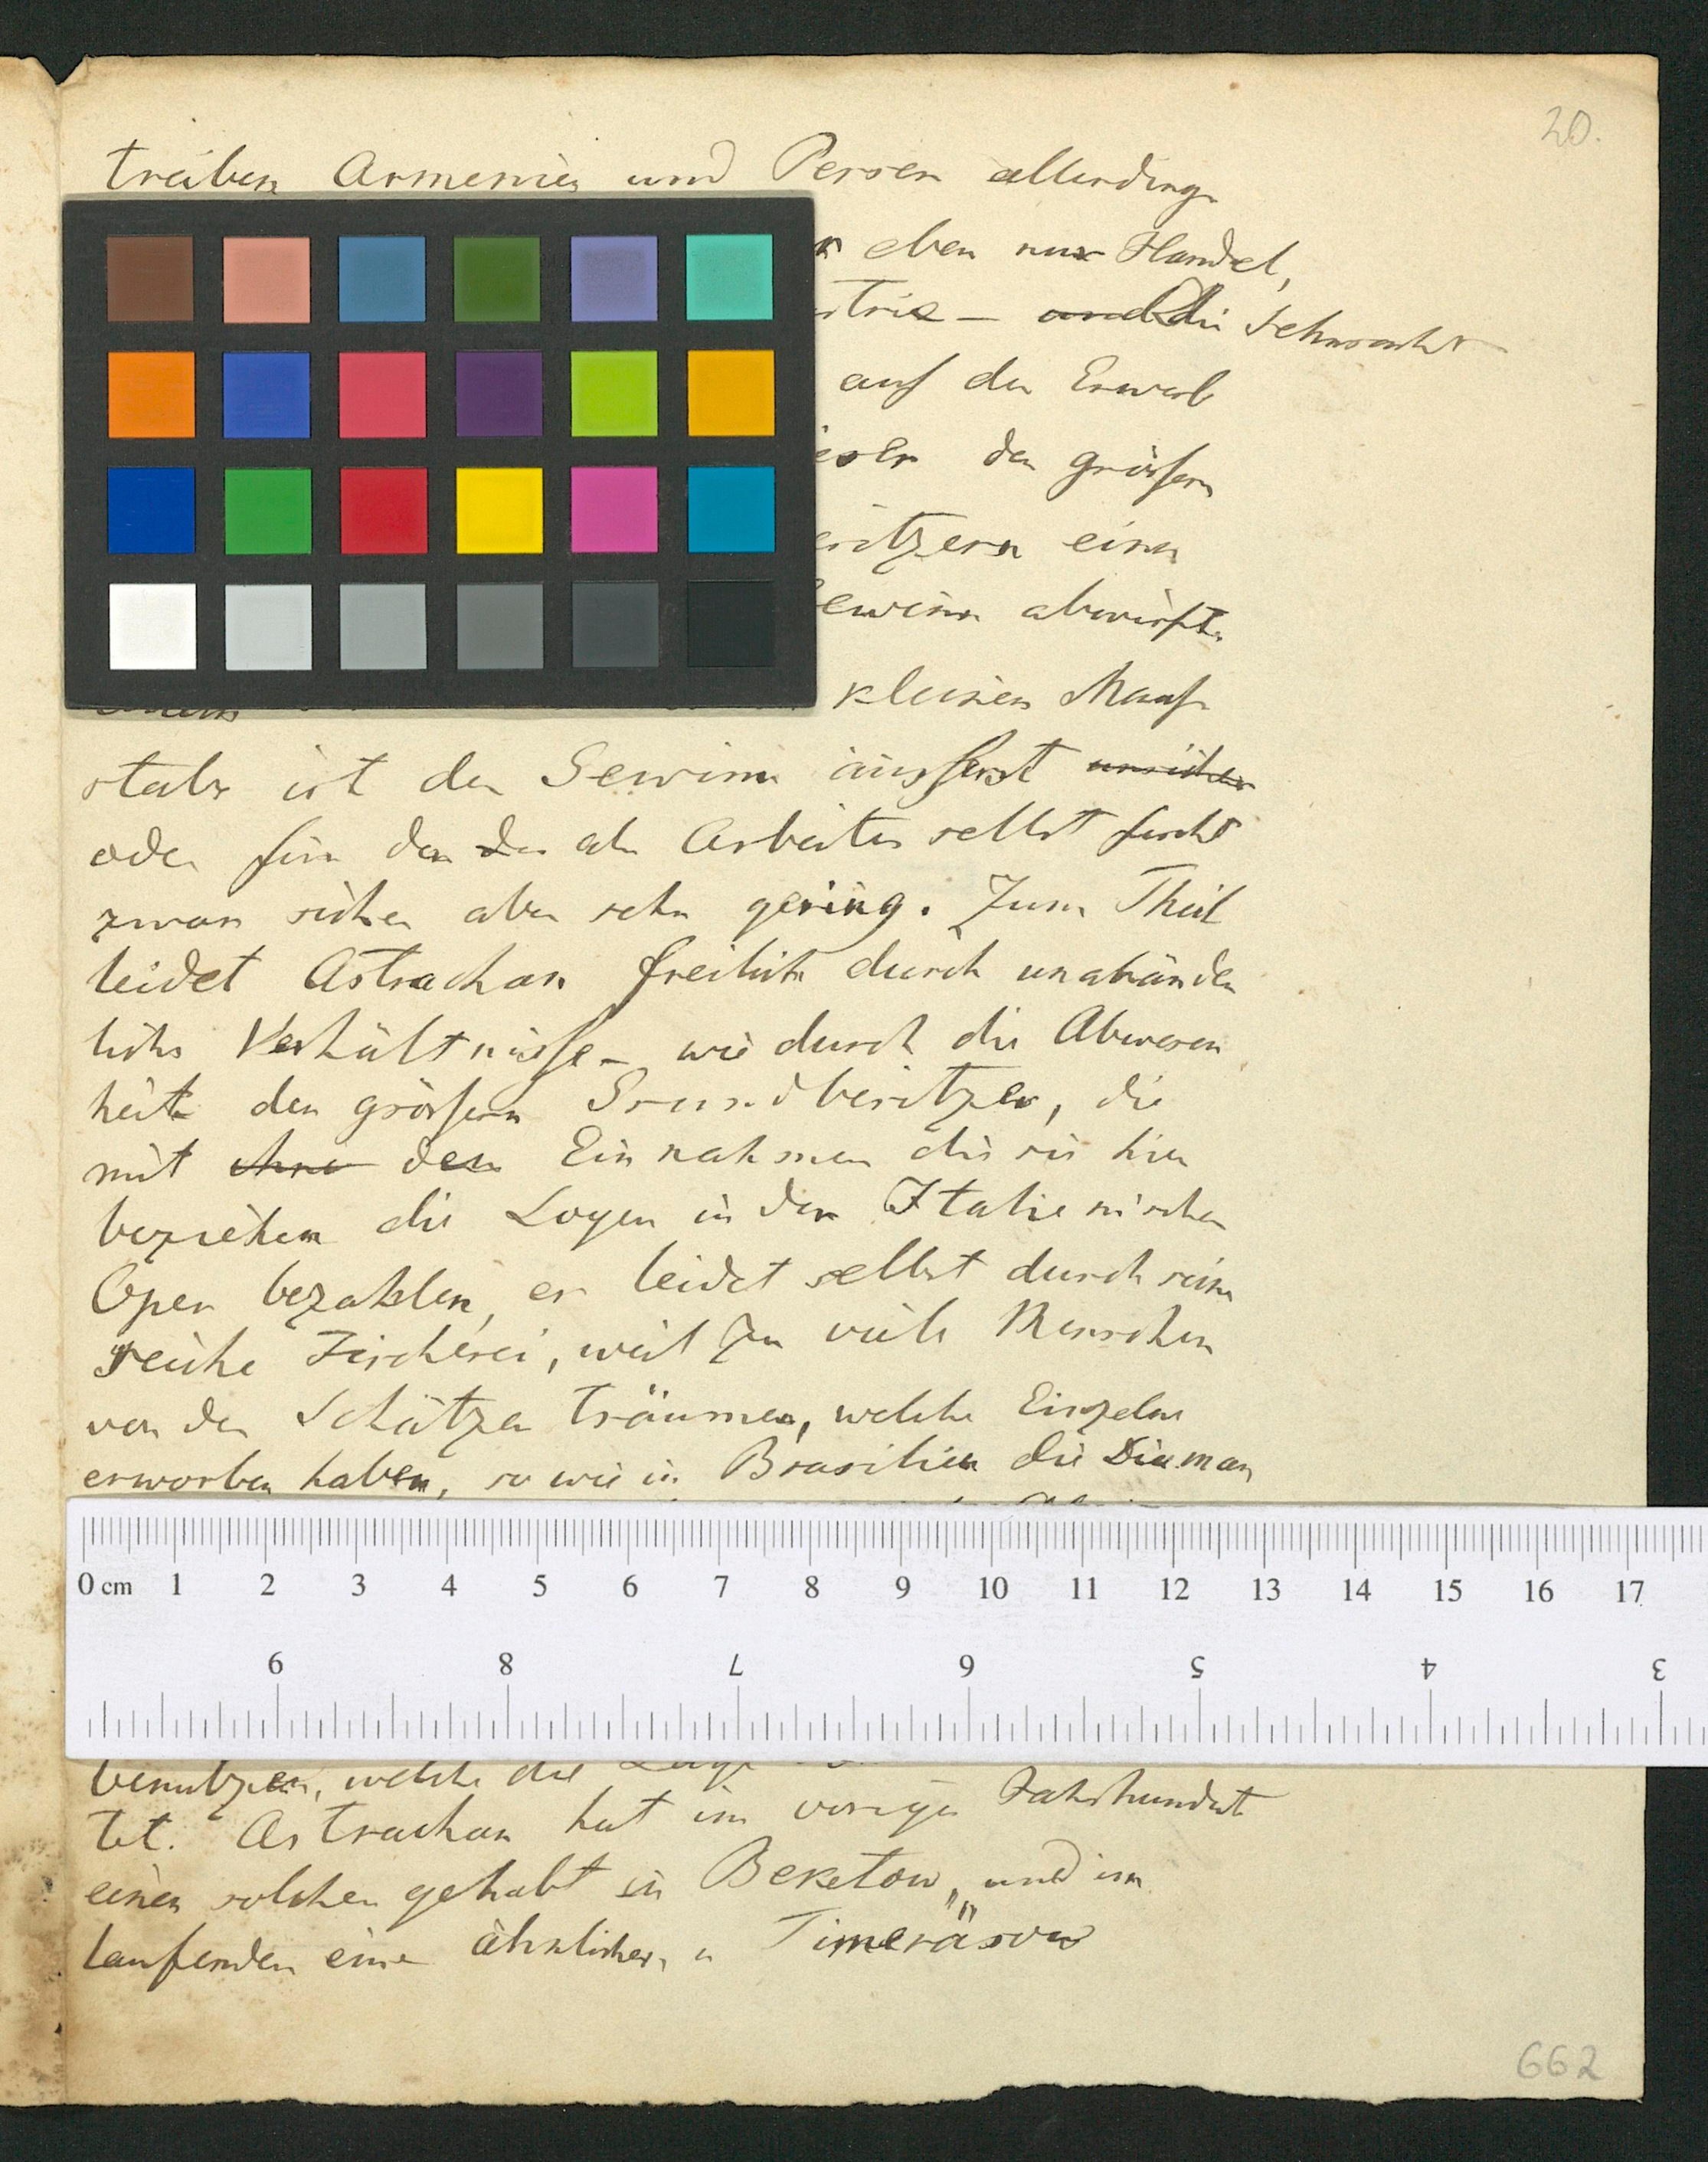 20.
treiben Armenier und Perser allerdings
eben nur Handel,
strie – und die Sehnsucht
auf den Erwerb
ieser den grössern
esitzern einen
Gewinn abwirft.
kleinen Maaß-
stabe ist der Gewinn äusserst unsicher
oder für den der als Arbeiter selbst fischt
zwar sicher aber sehr gering. Zum Theil
leidet Astrachan freilich durch unabänder
liche Verhältnisse – wie durch die Abwesen
heit der grössern Grundbesitzer, die
mit ihren den Einnahmen die sie hier
beziehen die Logen in der Italienischen
Oper bezahlen, es leidet selbst durch seine
reiche Fischerei, weil zu viele Menschen
von den Schätzen träumen, welche Einzelne
erworben haben, so wie in Brasilien die Diaman
0 cm 1 2 3 4 5 6 7 8 9 10 11 12 13 14 15 16 17
9 8 7 6 5 4 3
benutzen, welche die Lage
tet. Astrachan hat im vorigen Jahrhundert
einen solchen gehabt in Beketow, und im
laufenden einen ähnlichen in Timeräsow
662